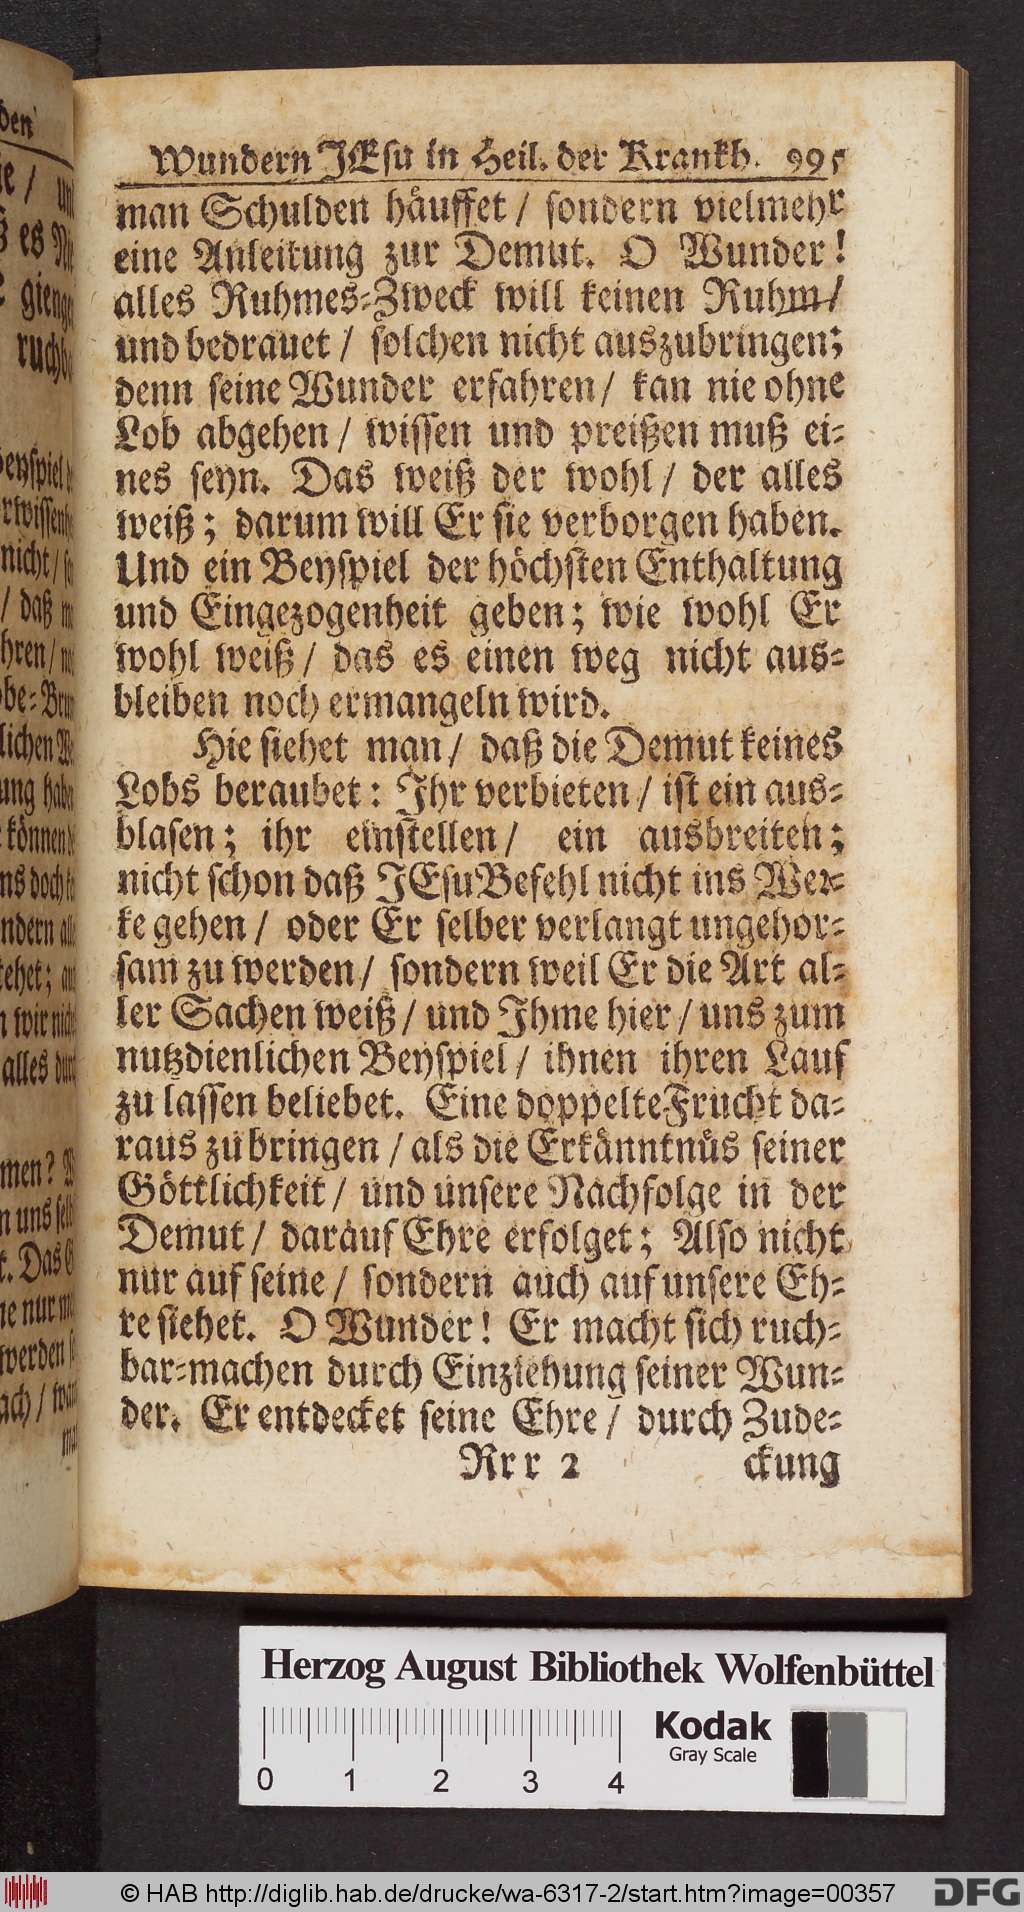 Wundern JEsu in Heil. der Krankh. 995
man Schulden häuffet / sondern vielmehr
eine Anleitung zur Demut. O Wunder!
alles Ruhmes-Zweck will keinen Ruhm /
und bedrauet / solchen nicht auszubringen;
denn seine Wunder erfahren / kan nie ohne
Lob abgehen / wissen und preißen muß ei-
nes seyn. Das weiß der wohl / der alles
weiß; darum will Er sie verborgen haben.
Und ein Beyspiel der höchsten Enthaltung
und Eingezogenheit geben; wie wohl Er
wohl weiß / das es einen weg nicht aus-
bleiben noch ermangeln wird.
Hie siehet man / daß die Demut keines
Lobs beraubet: Ihr verbieten / ist ein aus-
blasen; ihr einstellen / ein ausbreiten;
nicht schon daß JEsu Befehl nicht ins Wer-
ke gehen / oder Er selber verlangt ungehor-
sam zu werden / sondern weil Er die Art al-
ler Sachen weiß / und Ihme hier / uns zum
nutzdienlichen Beyspiel / ihnen ihren Lauf
zu lassen beliebet. Eine doppelte Frucht da-
raus zu bringen / als die Erkänntnüs seiner
Göttlichkeit / und unsere Nachfolge in der
Demut / darauf Ehre erfolget; Also nicht
nur auf seine / sondern auch auf unsere Eh-
re siehet. O Wunder! Er macht sich ruch-
bar-machen durch Einziehung seiner Wun-
der. Er entdecket seine Ehre / durch Zude-
Rrr 2 ckung
Herzog August Bibliothek Wolfenbüttel
Kodak
Gray Scale
0 1 2 3 4
© HAB http://diglib.hab.de/drucke/wa-6317-2/start.htm?image=00357
DFG